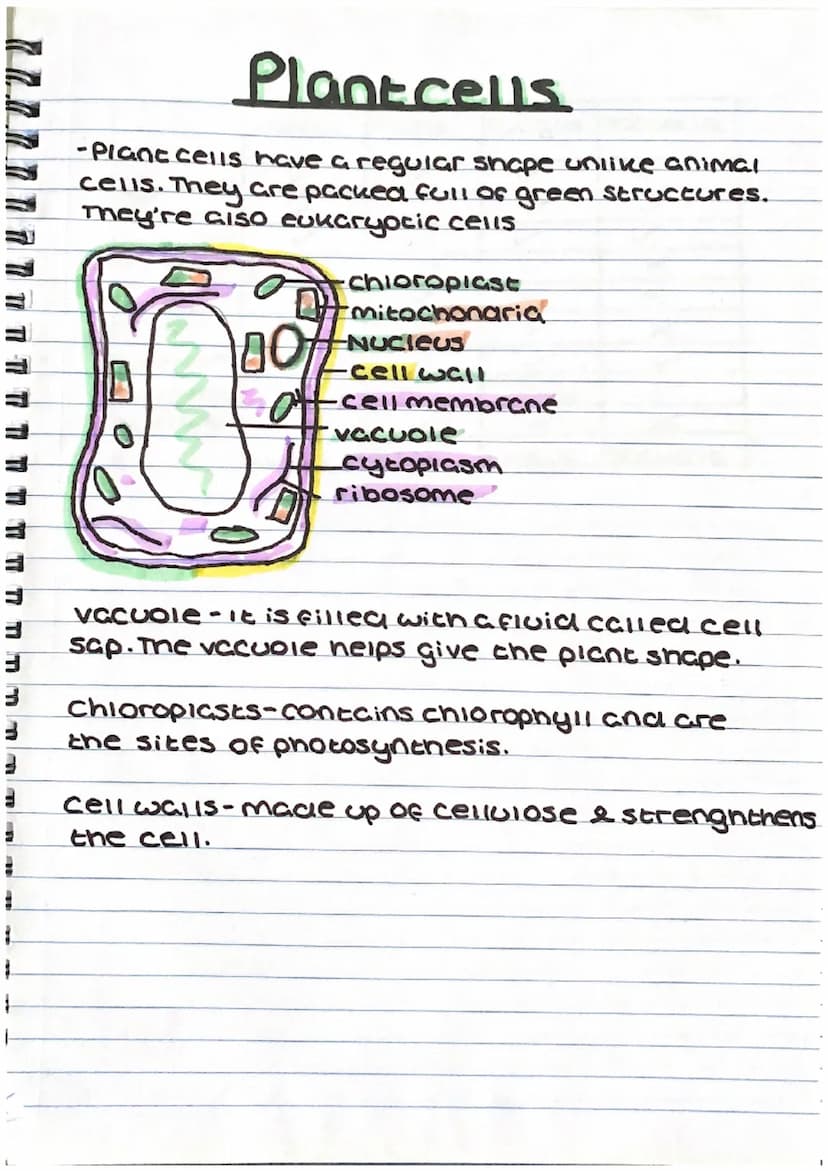 Plant cells
-Plant cells have a regular shape unlike animal
cells. They are packed full of green structures.
They're also eukaryotic cells
chloroplast
mitochondria
Nucleus
cell wall
cell membrane
vacuole
cytoplasm
ribosome
vacuole - it is filled with a fluid called cell
sap. The vacuole helps give the plant shape.
Chloroplasts - contains chlorophyll and are
the sites of photosynthesis.
Cell walls - made up of cellulose & strenghthens
the cell.